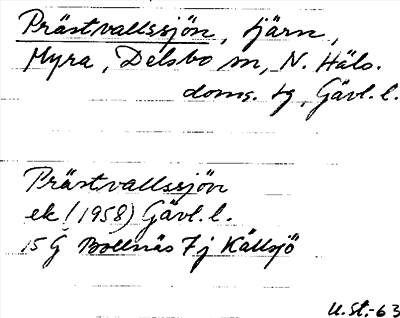 Prästvallssjön, tjärn,
Myra, Delsbo sn, N. Häls.
doms. tg, Gävl. l.
Prästvallssjön
ek (1958) Gävl. l.
15 G Bollnäs 7 j Källsjö
U.St.-63